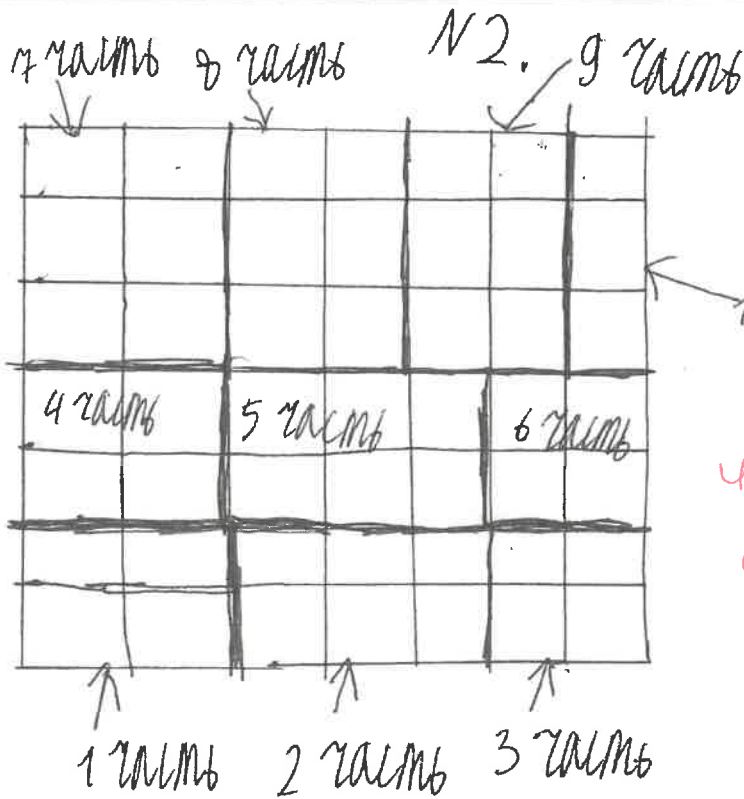 7 часть 8 часть N2. 9 часть
4 часть 5 часть 6 часть
1 часть 2 часть 3 часть